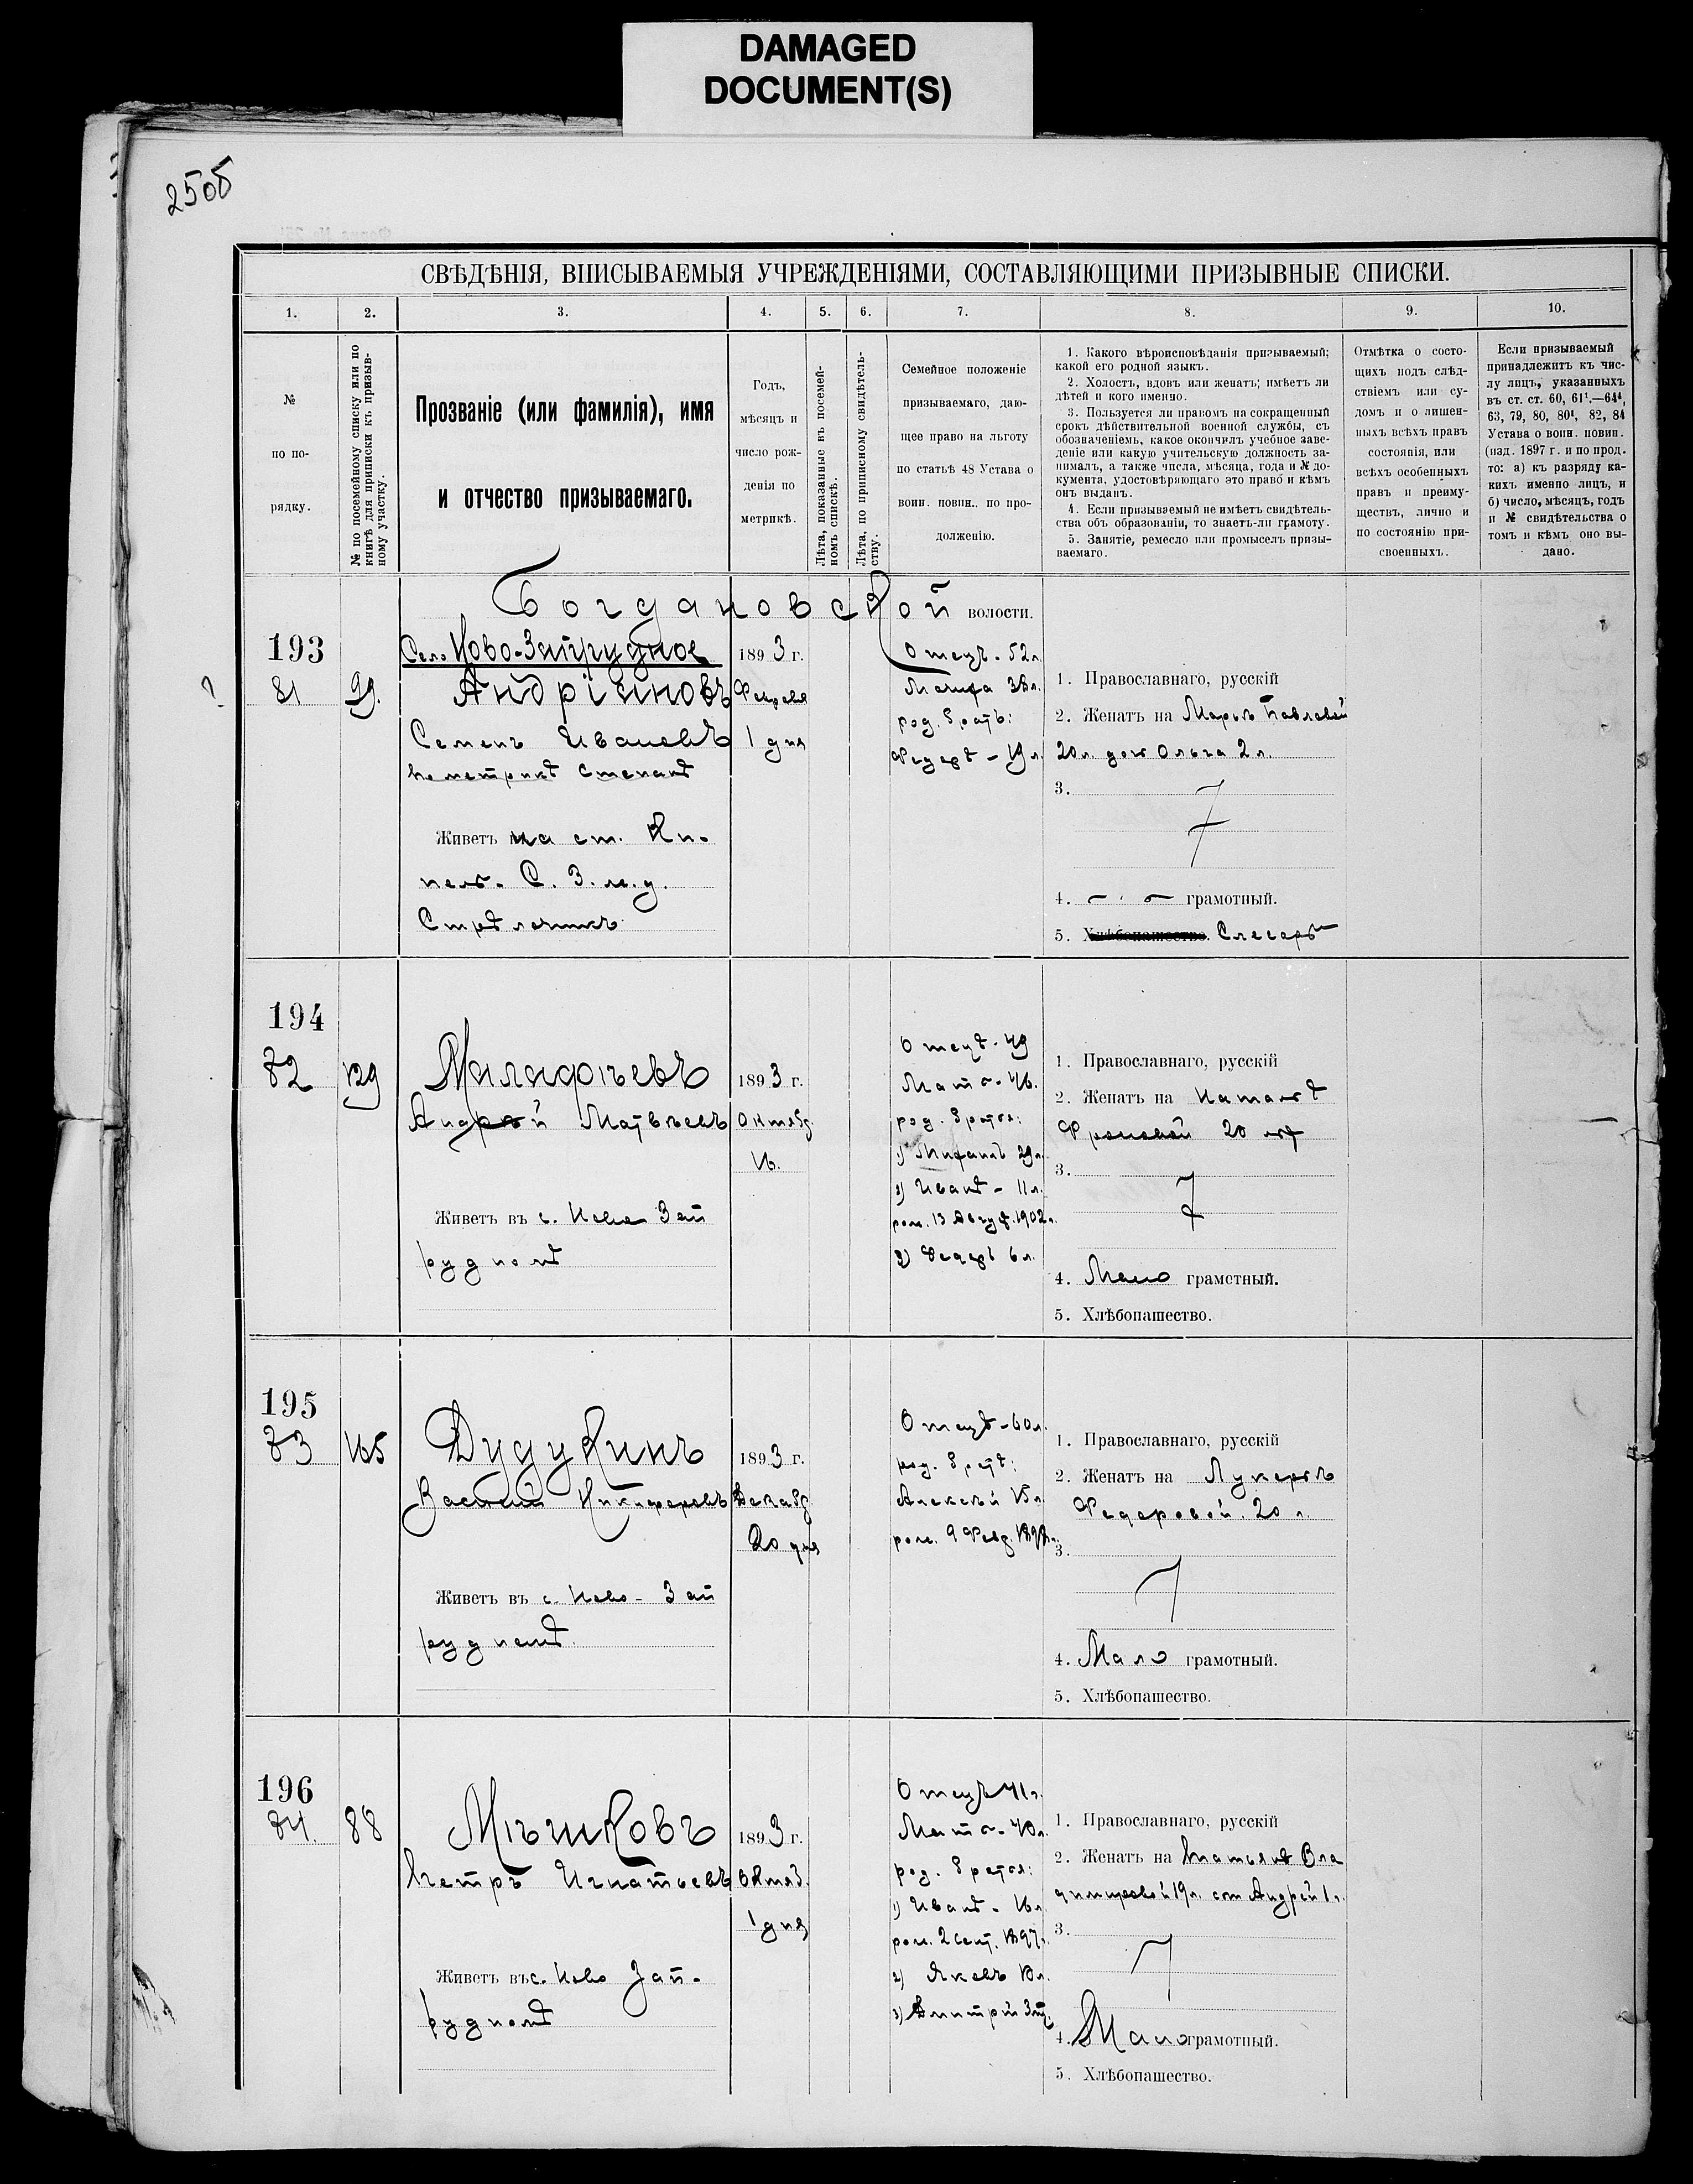 DAMAGED
DOCUMENT(S)
250б
СВѢДѢНІЯ, ВПИСЫВАЕМЫЯ УЧРЕЖДЕНІЯМИ, СОСТАВЛЯЮЩИМИ ПРИЗЫВНЫЕ СПИСКИ.
1. 2. 3. 4. 5. 6. 7. 8. 9. 10.
№
по по-
рядку.
№ по посемейному списку или по
книгѣ для приписки къ призыв-
ному участку.
Прозваніе (или фамилія), имя
и отчество призываемаго.
Годъ,
мѣсяцъ и
число рож-
денія по
метрикѣ.
Лѣта, показанные въ посемей-
номъ спискѣ.
Лѣта, по приписному свидѣтель-
ству.
Семейное положеніе
призываемаго, даю-
щее право на льготу
по статьѣ 48 Устава о
воин. повин., по про-
долженію.
1. Какого вѣроисповѣданія призываемый;
какой его родной языкъ.
2. Холостъ, вдовъ или женатъ; имѣетъ ли
дѣтей и кого именно.
3. Пользуется ли правомъ на сокращенный
срокъ дѣйствительной военной службы, съ
обозначеніемъ, какое окончилъ учебное заве-
деніе или какую учительскую должность за-
нималъ, а также числа, мѣсяца, года и № до-
кумента, удостовѣряющаго это право и кѣмъ
онъ выданъ.
4. Если призываемый не имѣетъ свидѣтель-
ства объ образованіи, то знаетъ-ли грамоту.
5. Занятіе, ремесло или промыселъ призы-
ваемаго.
Отмѣтка о состо-
щихъ подъ слѣд-
ствіемъ или су-
домъ и о лишен-
ныхъ всѣхъ правъ
состоянія, или
всѣхъ особенныхъ
правъ и преиму-
ществъ, лично и
по состоянію при-
своенныхъ.
Если призываемый
принадлежитъ къ чис-
лу лицъ, указанныхъ
въ ст. ст. 60, 61¹.—64⁴,
63, 79, 80, 80¹, 82, 84
Устава о воин. повин.
(изд. 1897 г. и по прод.
то: а) къ разряду ка-
кихъ именно лицъ, и
б) число, мѣсяцъ, годъ
и № свидѣтельства о
томъ и кѣмъ оно вы-
дано.
Богдановской волости.
193
?
81
99.
Село Ново-Запрудное
Андріяновъ
Семенъ Ивановъ
по метрикѣ Степанъ
Живетъ на ст. Ки-
нель. С. З. ж. д.
Стрѣлочникъ
1893 г.
Февраля
1 дня
Отецъ - 52 л
Мачиха 38 л.
род. братъ:
Федоръ - 19 л.
1. Православнаго, русскій
2. Женатъ на Марьѣ Павловой
20 л. доч Ольга 2 л.
3.
4. грамотный.
5. Хлѣбопашество. Слесарь
194
82
129
Малафѣевъ
Андрей Матвѣевъ
Живетъ въ с. Ново Зап
рудномъ
1893 г.
Октябр.
16.
Отецъ - 49
Мать - 46.
род. братья:
2) Иванъ - 11 л.
рож. 13 Август. 1902 г.
3) Федоръ 6 л.
1. Православнаго, русскій
2. Женатъ на Натальѣ
Фроловой 20 лѣт
3.
4. Мало грамотный.
5. Хлѣбопашество.
195
83
165
Дудукинъ
Василій Никифоровъ
Живетъ въ с. Ново - Зап
рудномъ
1893 г.
Декабр.
20 дня
Отецъ - 60 л.
род. братъ:
Алексѣй 15 л
рож. 9 Февр. 1898 г.
1. Православнаго, русскій
2. Женатъ на Лукерьѣ
Федоровой. 20 л.
3.
4. Мало грамотный.
5. Хлѣбопашество.
196
84.
88
Мѣшковъ
Петръ Игнатьевъ
Живетъ въ с. Ново Зап-
рудномъ
1893 г.
Октяб.
1 дня
Отецъ 41 г.
Мать - 40 л.
род. братья:
1) Иванъ - 16 л
рож. 2 Сент. 1897 г.
2) Яковъ 10 л.
3) Дмитрій
1. Православнаго, русскій
2. Женатъ на Татьянѣ Вла
димировой 19 л. сын Андрей 1 г.
3.
4. Мало грамотный.
5. Хлѣбопашество.